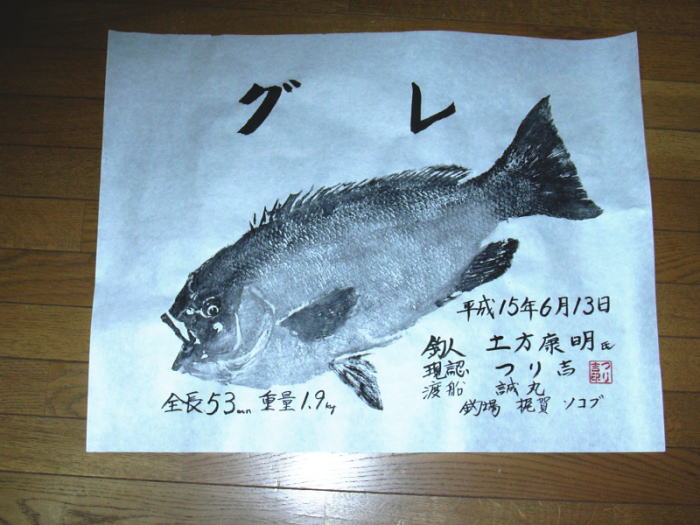 グレ
平成15年6月13日
釣人 土方康明氏
現認 つり志
渡船 誠丸
釣場 梶賀 ソコブ
全長53cm 重量1.9kg